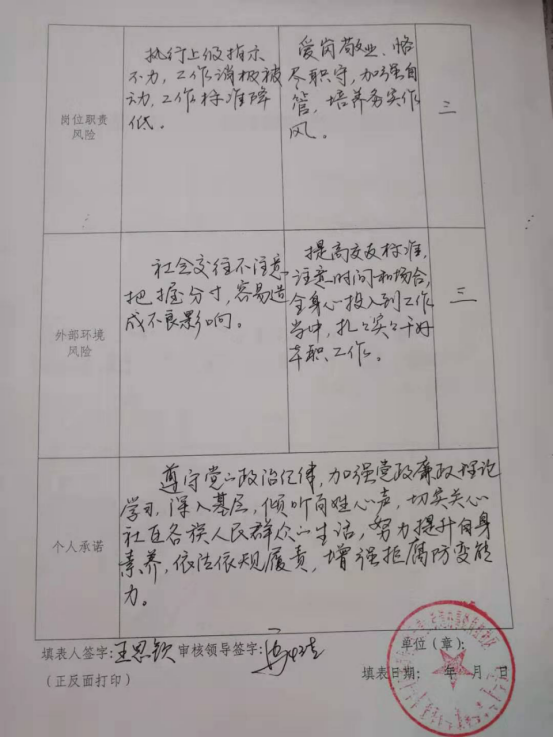 岗位职责
风险
执行上级指示
不力,工作消极被
动,工作标准降
低。
爱岗敬业、恪
尽职守,加强自
管,培养务实作
风。
三
外部环境
风险
社会交往不注意
把握分寸,容易造
成不良影响。
提高交友标准,
注意时间和场合,
全身心投入到工作
当中,扎扎实实干好
本职工作。
三
个人承诺
遵守党的政治纪律,加强党政廉政理论
学习,深入基层,倾听百姓心声,切实关心
社区各族人民群众的生活,努力提升自身
素养,依法依规履责,增强拒腐防变能
力。
填表人签字:王思钦 审核领导签字: 单位(章):
(正反面打印) 填表日期: 年 月 日